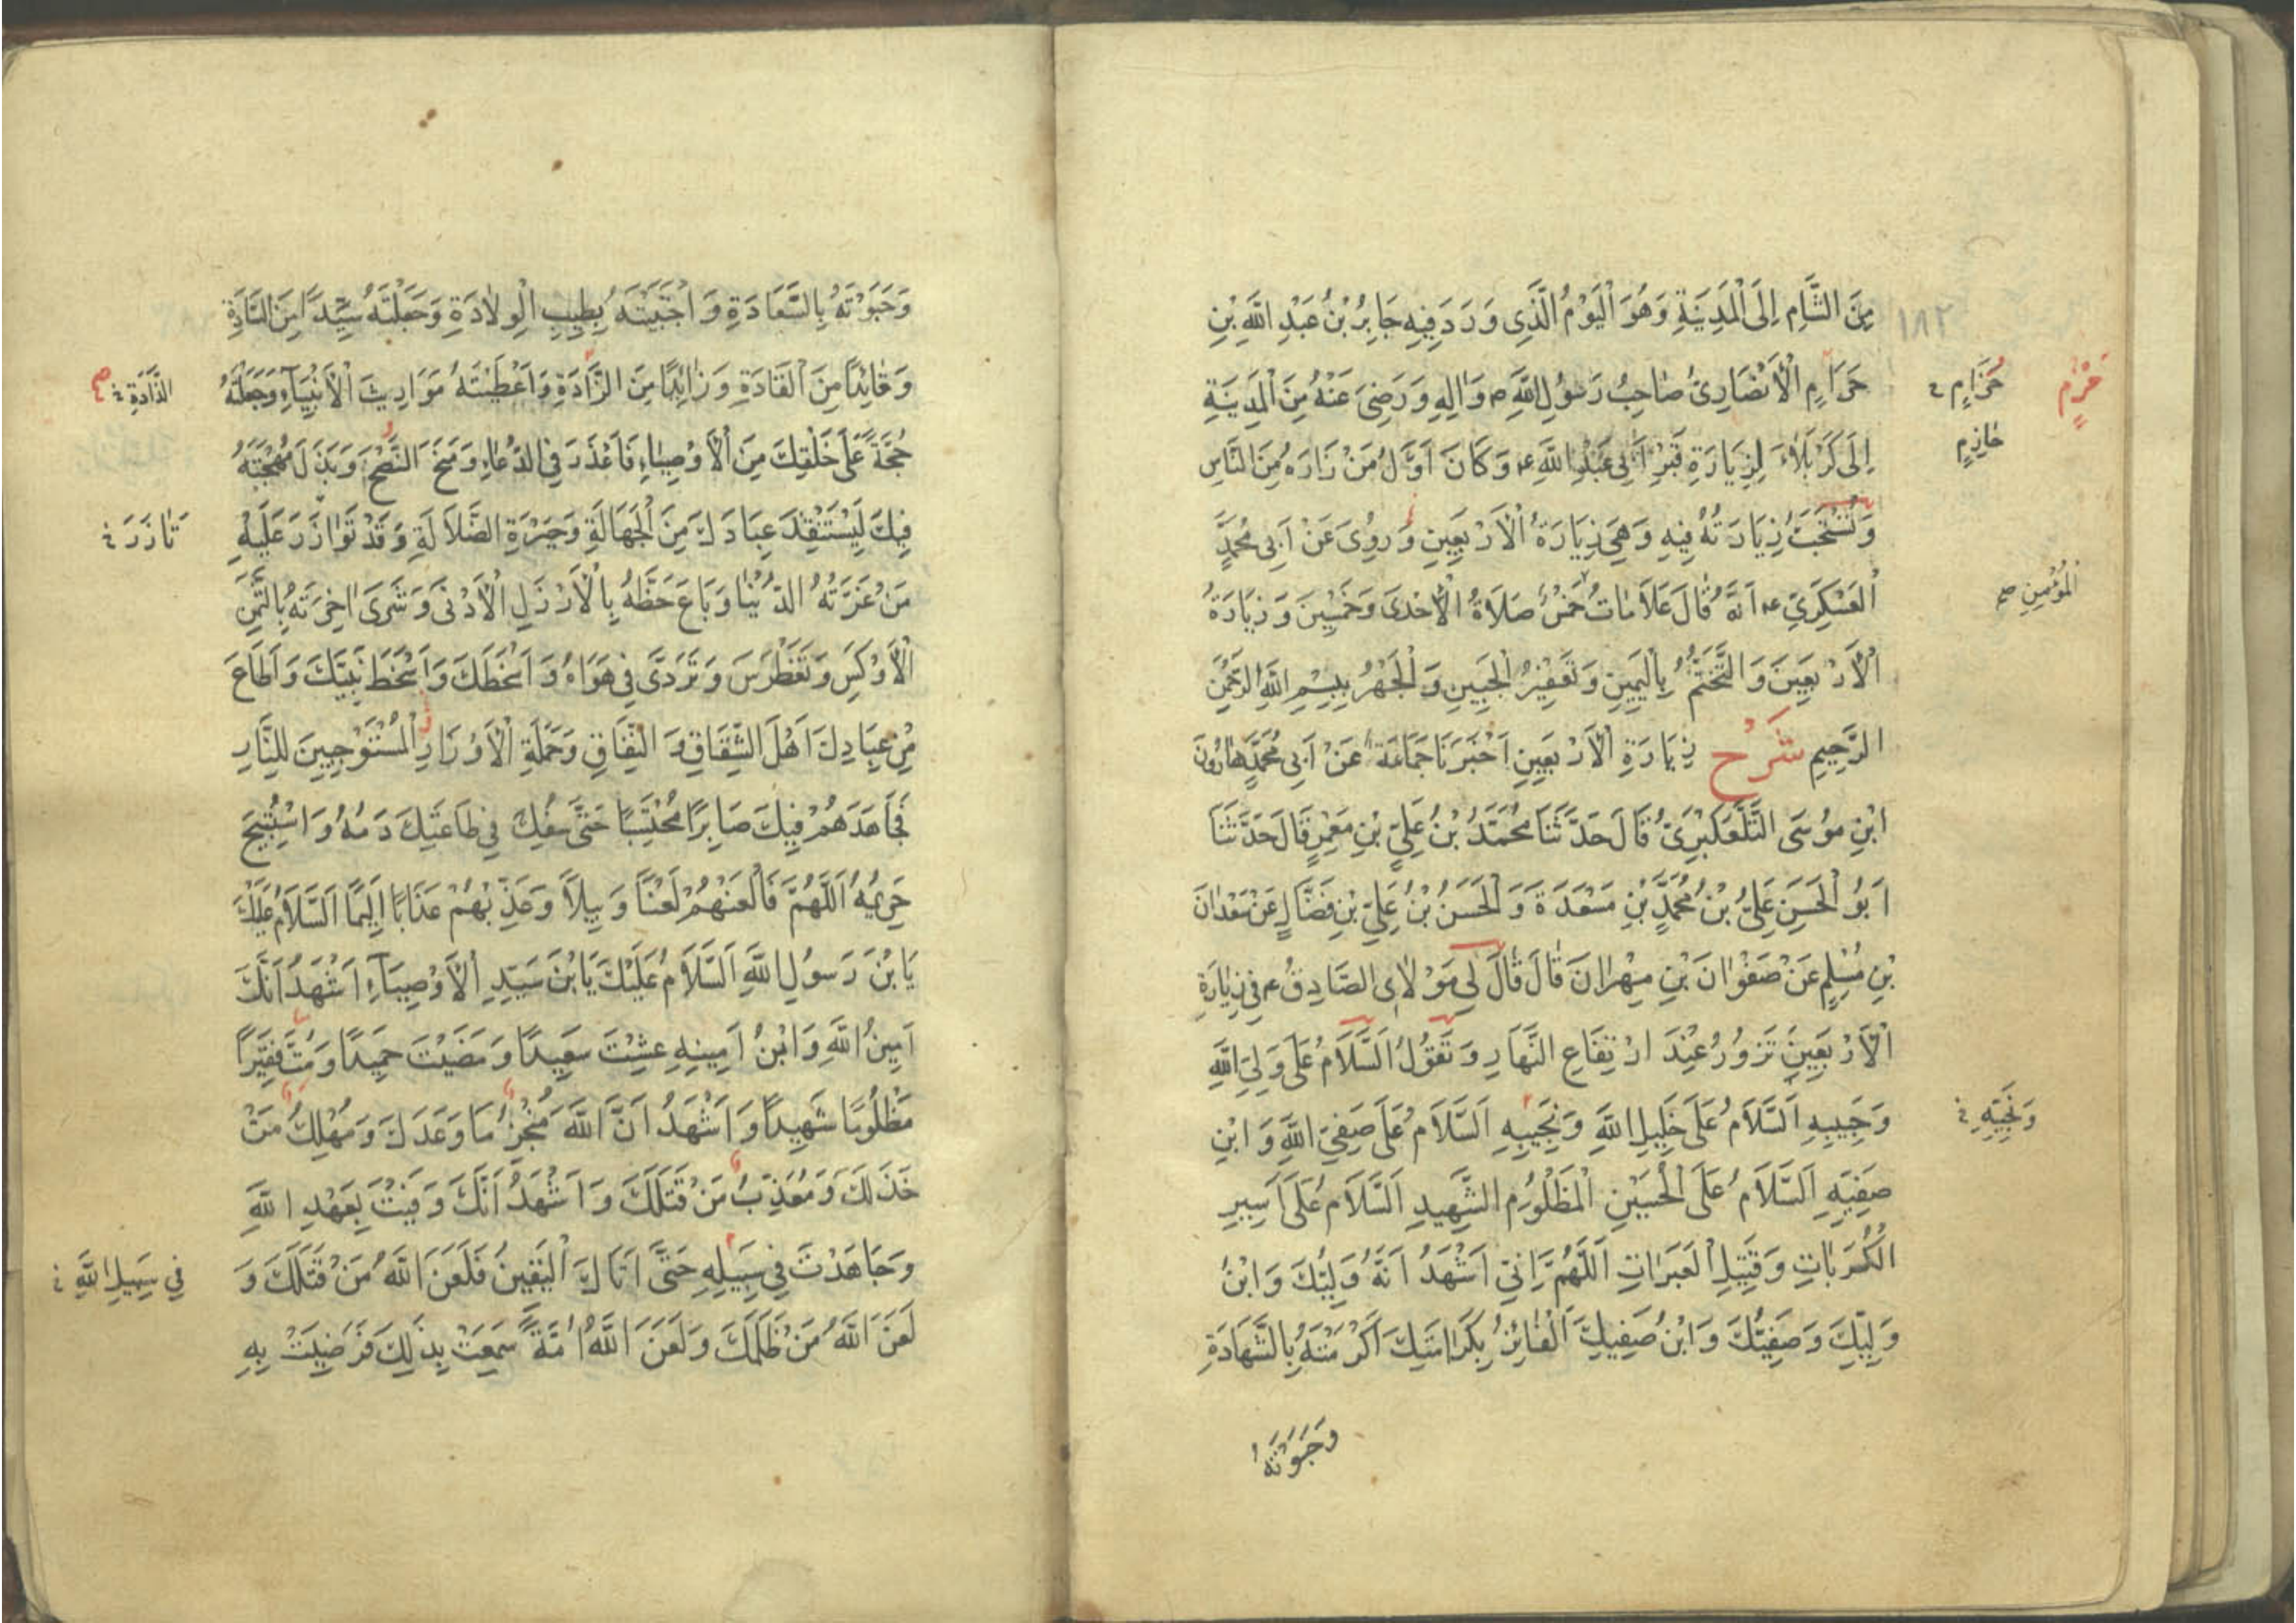 مِنَ الشَّامِ إِلَى الْمَدِينَةِ وَهُوَ الْيَوْمُ الَّذِى وَرَدَ فِيهِ جَابِرُ بْنُ عَبْدِ اللَّهِ بْنِ
۱۸۲
حَرَامٍ الْأَنْصَارِىُّ صَاحِبُ رَسُولِ اللَّهِ ص وَالِهِ وَرَضِىَ عَنْهُ مِنَ الْمَدِينَةِ
حَزَامٍ خ
حَزْمٍ
حَازِمٍ
إِلَى كَرْبَلَاءَ لِزِيَارَةِ قَبْرِ أَبِى عَبْدِ اللَّهِ ع وَكَانَ أَوَّلُ مَنْ زَارَهُ مِنَ النَّاسِ
وَتُسْتَحَبُّ زِيَارَتُهُ فِيهِ وَهِىَ زِيَارَةُ الْأَرْبَعِينِ وَرُوِىَ عَنْ أَبِى مُحَمَّدٍ
الْعَسْكَرِىِّ ع أَنَّهُ قَالَ عَلَامَاتُ خَمْسٌ صَلَاةُ الْأَحْدَى وَخَمْسِينَ وَزِيَارَةُ
الْمُؤْمِنِ صح
الْأَرْبَعِينَ وَالتَّخَتُّمُ بِالْيَمِينِ وَتَعْفِيرُ الْجَبِينِ وَالْجَهْرُ بِبِسْمِ اللَّهِ الرَّحْمٰنِ
الرَّحِيمِ شَرْحُ زِيَارَةِ الْأَرْبَعِينِ أَخْبَرَنَا جَمَاعَةٌ عَنْ أَبِى مُحَمَّدٍ هَارُونَ
ابْنِ مُوسَى التَّلَّعُكْبَرِىِّ قَالَ حَدَّثَنَا مُحَمَّدُ بْنُ عَلِىِّ بْنِ مَعْمَرٍ قَالَ حَدَّثَنَا
أَبُو الْحَسَنِ عَلِىُّ بْنُ مُحَمَّدِ بْنِ مَسْعَدَةَ وَالْحَسَنُ بْنُ عَلِىِّ بْنِ فَضَّالٍ عَنْ سَعْدَانَ
بْنِ مُسْلِمٍ عَنْ صَفْوَانَ بْنِ مِهْرَانَ قَالَ قَالَ لِى مَوْلَاىَ الصَّادِقُ ع فِى زِيَارَةِ
الْأَرْبَعِينَ تَزُورُ عِنْدَ ارْتِفَاعِ النَّهَارِ وَتَقُولُ السَّلَامُ عَلَى وَلِىِّ اللَّهِ
وَحَبِيبِهِ اَلسَّلَامُ عَلَى خَلِيلِ اللَّهِ وَنَجِيبِهِ اَلسَّلَامُ عَلَى صَفِىِّ اللَّهِ وَابْنِ
وَنَجِيِّهِ خ
صَفِيِّهِ اَلسَّلَامُ عَلَى الْحُسَيْنِ الْمَظْلُومِ الشَّهِيدِ اَلسَّلَامُ عَلَى أَسِيرِ
الْكُرُبَاتِ وَقَتِيلِ الْعَبَرَاتِ اَللَّهُمَّ إِنِّى أَشْهَدُ أَنَّهُ وَلِيُّكَ وَابْنُ
وَلِيِّكَ وَصَفِيُّكَ وَابْنُ صَفِيِّكَ الْفَائِزُ بِكَرَامَتِكَ أَكْرَمْتَهُ بِالشَّهَادَةِ
وَحَبَوْتَهُ
وَحَبَوْتَهُ بِالسَّعَادَةِ وَاجْتَبَيْتَهُ بِطِيبِ الْوِلَادَةِ وَجَعَلْتَهُ سَيِّدًا مِنَ السَّادَةِ
وَقَائِدًا مِنَ الْقَادَةِ وَزَائِدًا مِنَ الزَّادَةِ وَأَعْطَيْتَهُ مَوَارِيثَ الْأَنْبِيَاءِ وَجَعَلْتَهُ
الذَّادَةِ خ صح
حُجَّةً عَلَى خَلْقِكَ مِنَ الْأَوْصِيَاءِ فَأَعْذَرَ فِى الدُّعَاءِ وَمَنَحَ النُّصْحَ وَبَذَلَ مُهْجَتَهُ
فِيكَ لِيَسْتَنْقِذَ عِبَادَكَ مِنَ الْجَهَالَةِ وَحَيْرَةِ الضَّلَالَةِ وَقَدْ تَوَازَرَ عَلَيْهِ
تَازَرَ خ
مَنْ غَرَّتْهُ الدُّنْيَا وَبَاعَ حَظَّهُ بِالْأَرْذَلِ الْأَدْنَى وَشَرَى اخِرَتَهُ بِالثَّمَنِ
الْأَوْكَسِ وَتَغَطْرَسَ وَتَرَدَّى فِى هَوَاهُ وَأَسْخَطَكَ وَأَسْخَطَ نَبِيَّكَ وَأَطَاعَ
مِنْ عِبَادِكَ أَهْلَ الشِّقَاقِ وَالنِّفَاقِ وَحَمَلَةِ الْأَوْزَارِ الْمُسْتَوْجِبِينَ لِلنَّارِ
فَجَاهَدَهُمْ فِيكَ صَابِرًا مُحْتَسِبًا حَتَّى سُفِكَ فِى طَاعَتِكَ دَمُهُ وَاسْتُبِيحَ
حَرِيمُهُ اَللَّهُمَّ فَالْعَنْهُمْ لَعْنًا وَبِيلًا وَعَذِّبْهُمْ عَذَابًا أَلِيمًا اَلسَّلَامُ عَلَيْكَ
يَا بْنَ رَسُولِ اللَّهِ اَلسَّلَامُ عَلَيْكَ يَا بْنَ سَيِّدِ الْأَوْصِيَاءِ أَشْهَدُ أَنَّكَ
أَمِينُ اللَّهِ وَابْنُ أَمِينِهِ عِشْتَ سَعِيدًا وَمَضَيْتَ حَمِيدًا وَمُتَّ فَقِيرًا
مَظْلُومًا شَهِيدًا وَأَشْهَدُ أَنَّ اللَّهَ مُنْجِزٌ مَا وَعَدَكَ وَمُهْلِكٌ مَنْ
خَذَلَكَ وَمُعَذِّبٌ مَنْ قَتَلَكَ وَأَشْهَدُ أَنَّكَ وَفَيْتَ بِعَهْدِ اللَّهِ
وَجَاهَدْتَ فِى سَبِيلِهِ حَتَّى أَتَاكَ الْيَقِينُ فَلَعَنَ اللَّهُ مَنْ قَتَلَكَ وَ
فِى سَبِيلِ اللَّهِ خ
لَعَنَ اللَّهُ مَنْ ظَلَمَكَ وَلَعَنَ اللَّهُ أُمَّةً سَمِعَتْ بِذَلِكَ فَرَضِيَتْ بِهِ